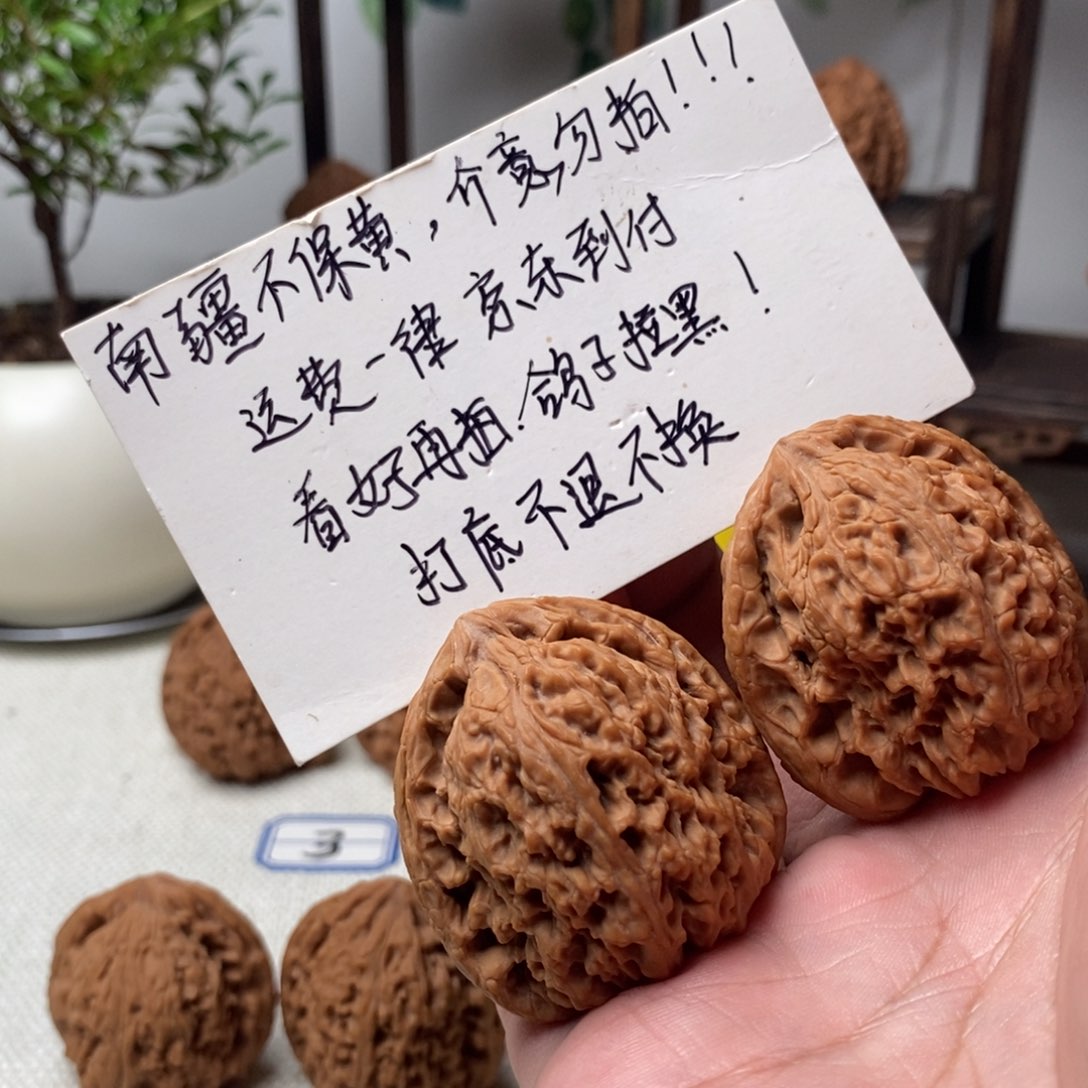 南疆不保黄，介意勿拍！！！
运费一律京东到付
看好再拍.鸽子拉黑！
打底不退不换
3